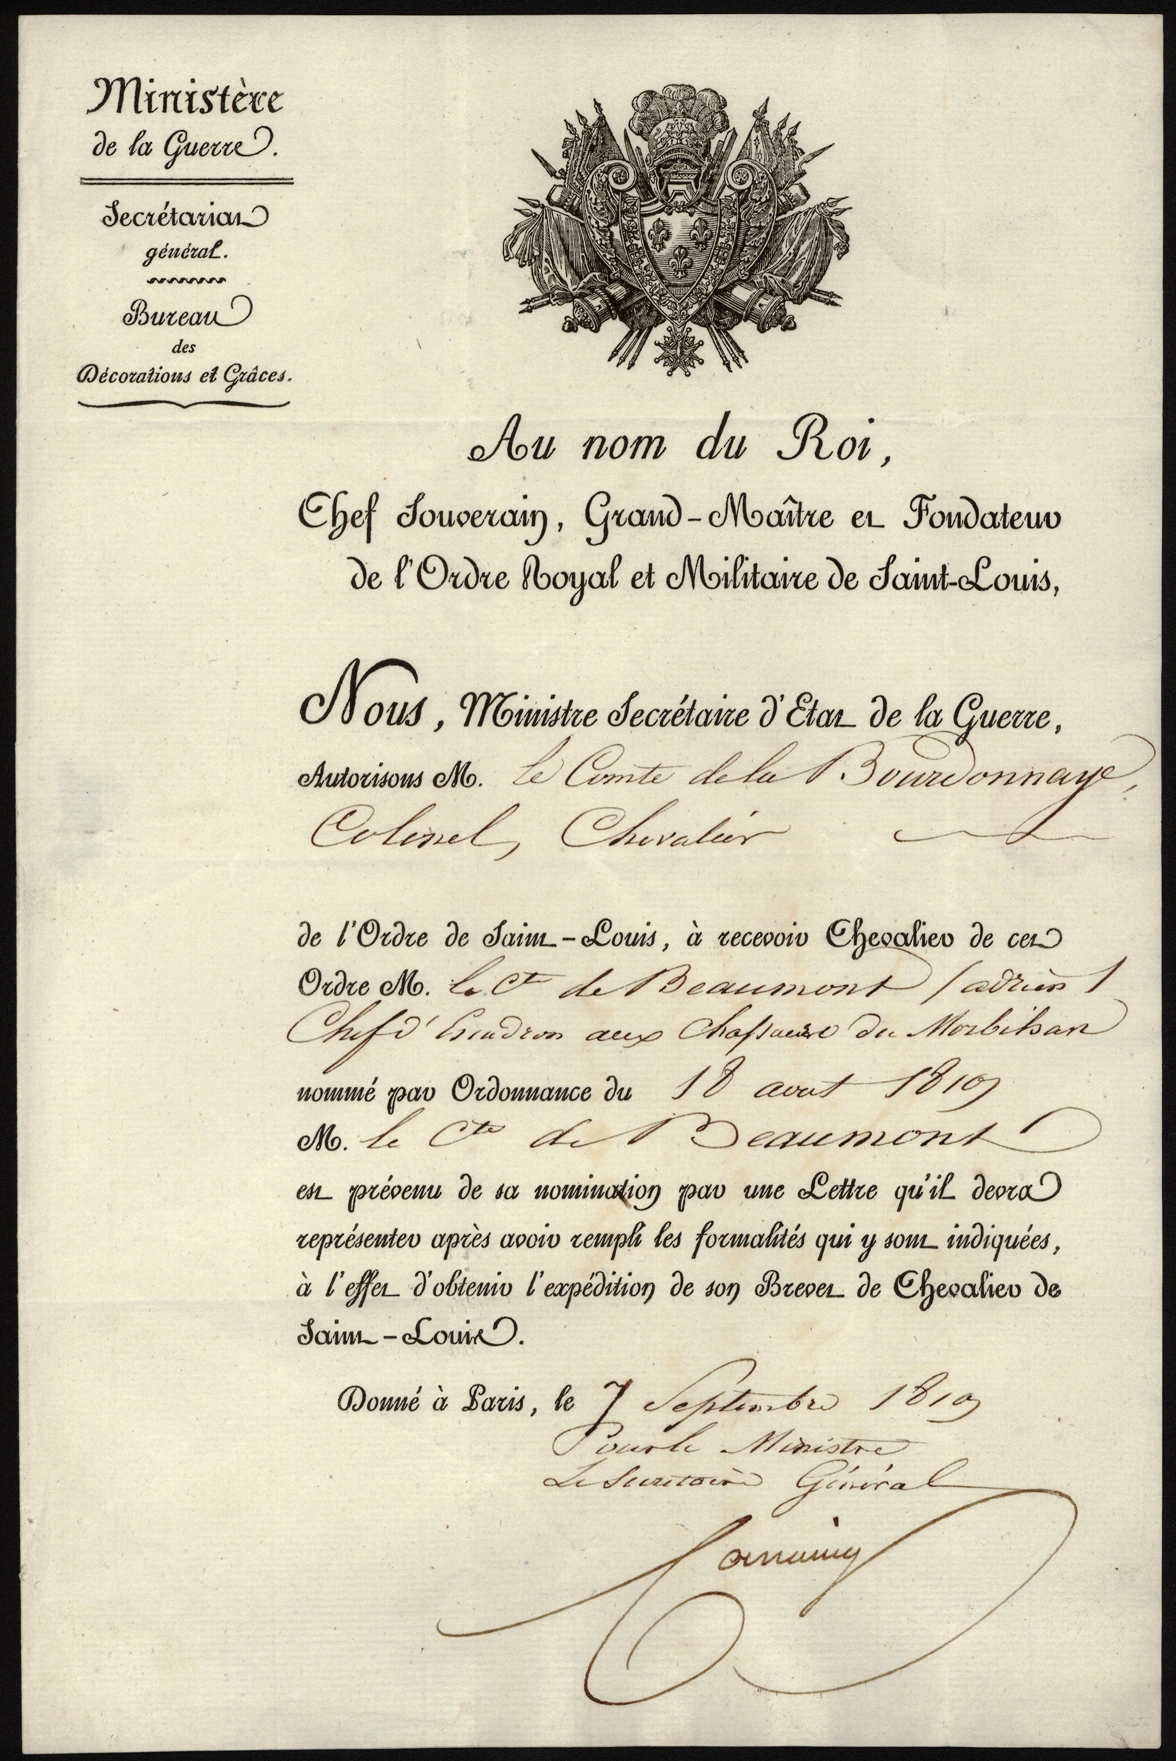 Ministère
de la Guerre.
Secrétariat
général.
Bureau
des
Décorations et Grâces.
Au nom du Roi,
Chef Souverain, Grand-Maître et Fondateur
de l'Ordre Royal et Militaire de Saint-Louis,
Nous, Ministre Secrétaire d'Etat de la Guerre,
Autorisons M. le Comte de la Bourdonnaye,
Colonel, Chevalier
de l'Ordre de Saint-Louis, à recevoir Chevalier de cet
Ordre M. le Cte de Beaumont (adrien)
Chef d'Escadron aux Chasseurs du Morbihan
nommé par Ordonnance du 18 aout 1819
M. le Cte de Beaumont
est prévenu de sa nomination par une Lettre qu'il devra
représenter après avoir rempli les formalités qui y sont indiquées,
à l'effet d'obtenir l'expédition de son Brevet de Chevalier de
Saint-Louis.
Donné à Paris, le 7 Septembre 1819
Pour le Ministre
Le Secretaire Général